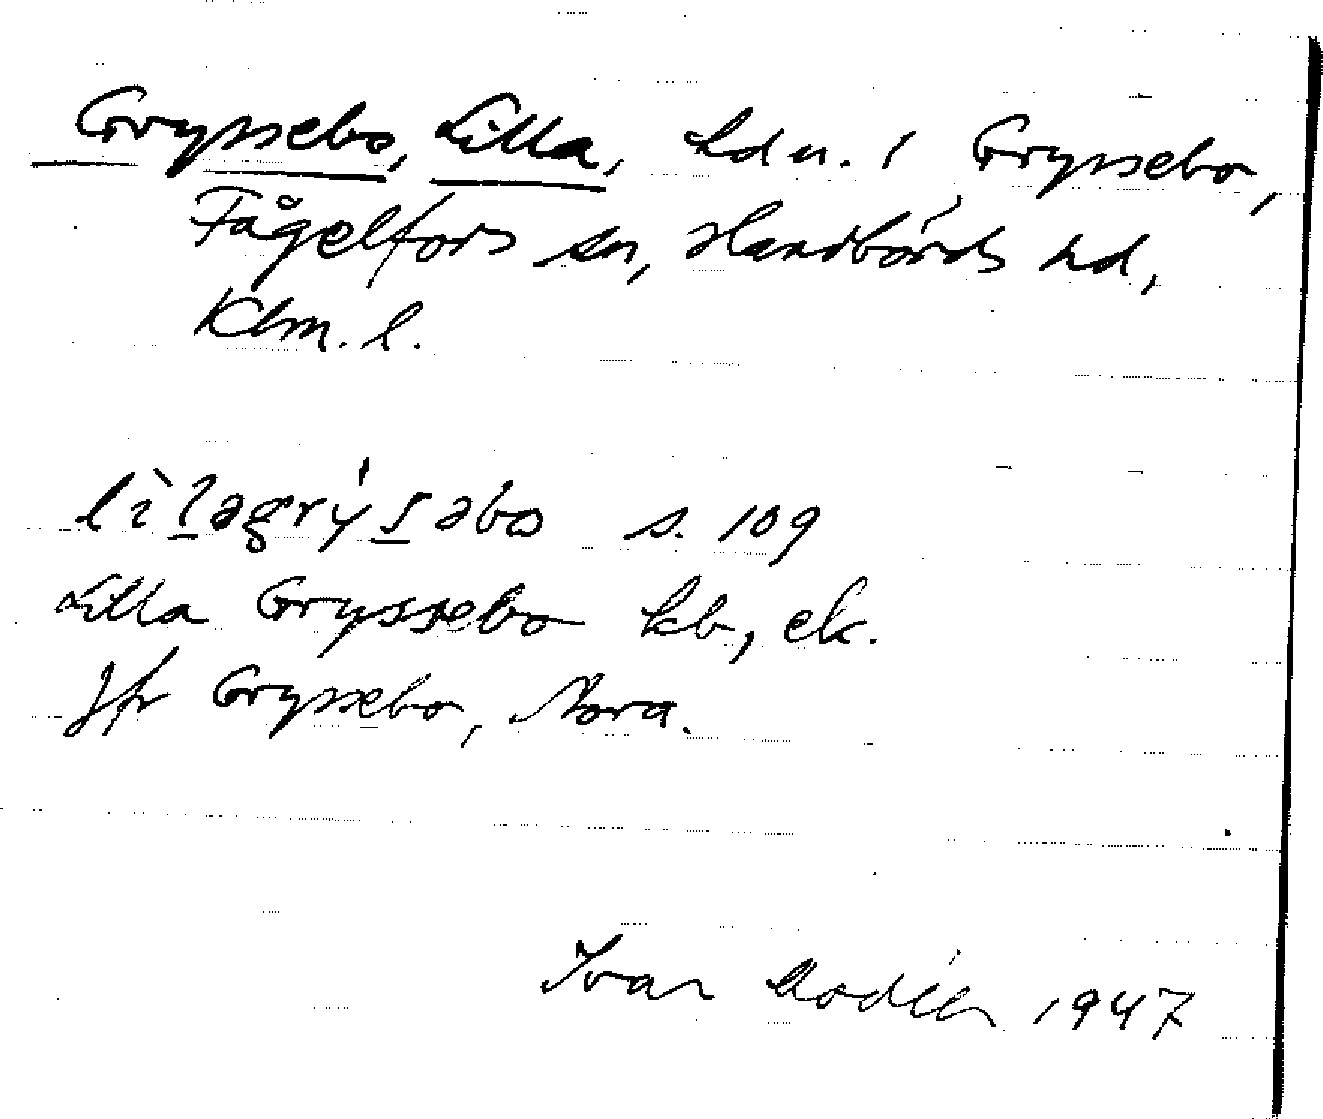 Gryssebo, Lilla, hdn. i Gryssebo,
Fågelfors sn, Handbörds hd,
Klm. l.
lìlagrýsabo s. 109
Lilla Gryssebo kb, ek.
Jfr Gryssebo, Norra.
Ivar Modéer 1947